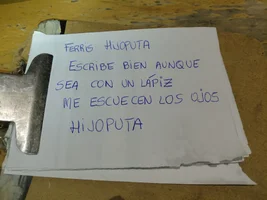 FERRIS HIJOPUTA
ESCRIBE BIEN AUNQUE
SEA CON UN LÁPIZ
ME ESCUECEN LOS OJOS
HIJOPUTA